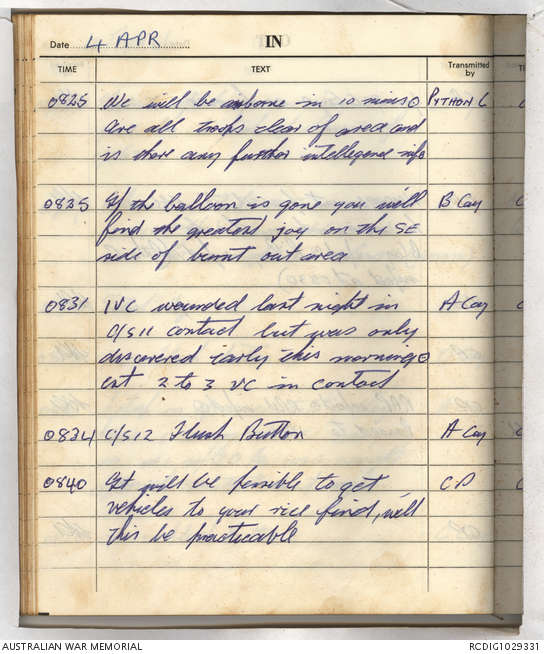 Date 4 APR IN
TIME TEXT Transmitted by
0825 We will be airborne in 10 mins PYTHON 6
Are all troops clear of area and
is there any further intellegence info
0825 If the balloon is gone you will B Coy
find the greatest joy on the SE
side of burnt out area
0831 1 VC wounded last night in A Coy
C/S 11 contact but was only
discovered early this morning
est 2 to 3 VC in contact
0834 C/S 12 Flush Button A Coy
0840 It will be possible to get CP
vehicles to your rice find, will
this be practicable
AUSTRALIAN WAR MEMORIAL RCDIG1029331